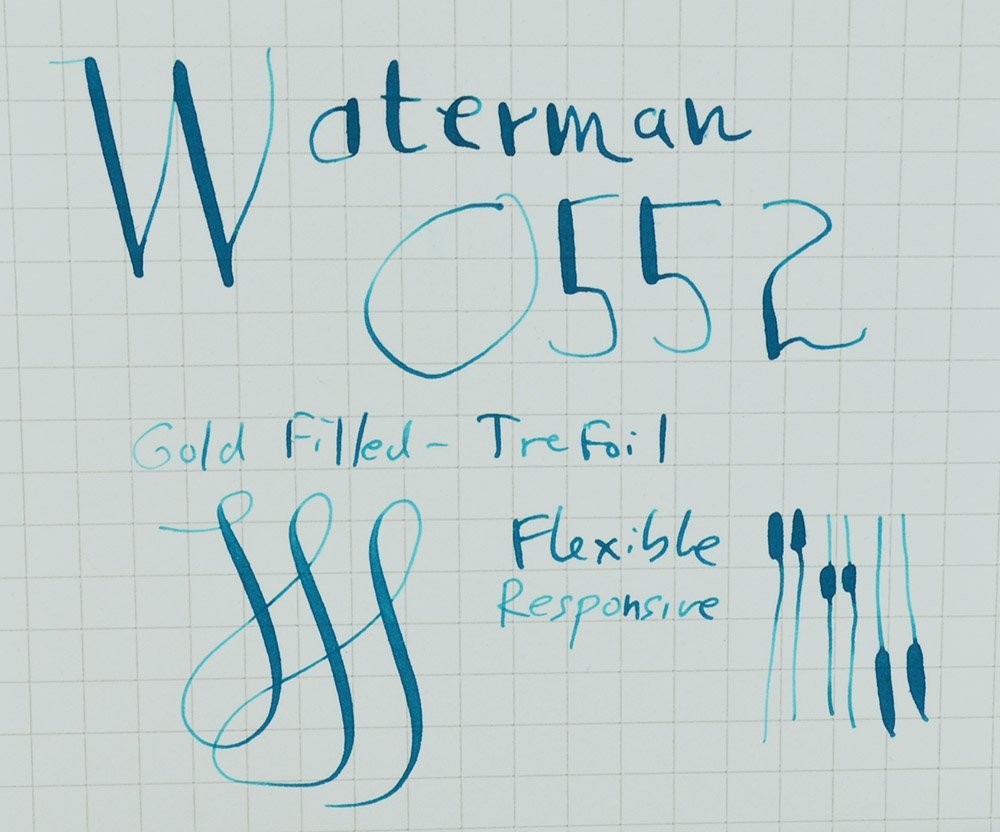 Waterman
0552
Gold Filled - Trefoil
Flexible
Responsive